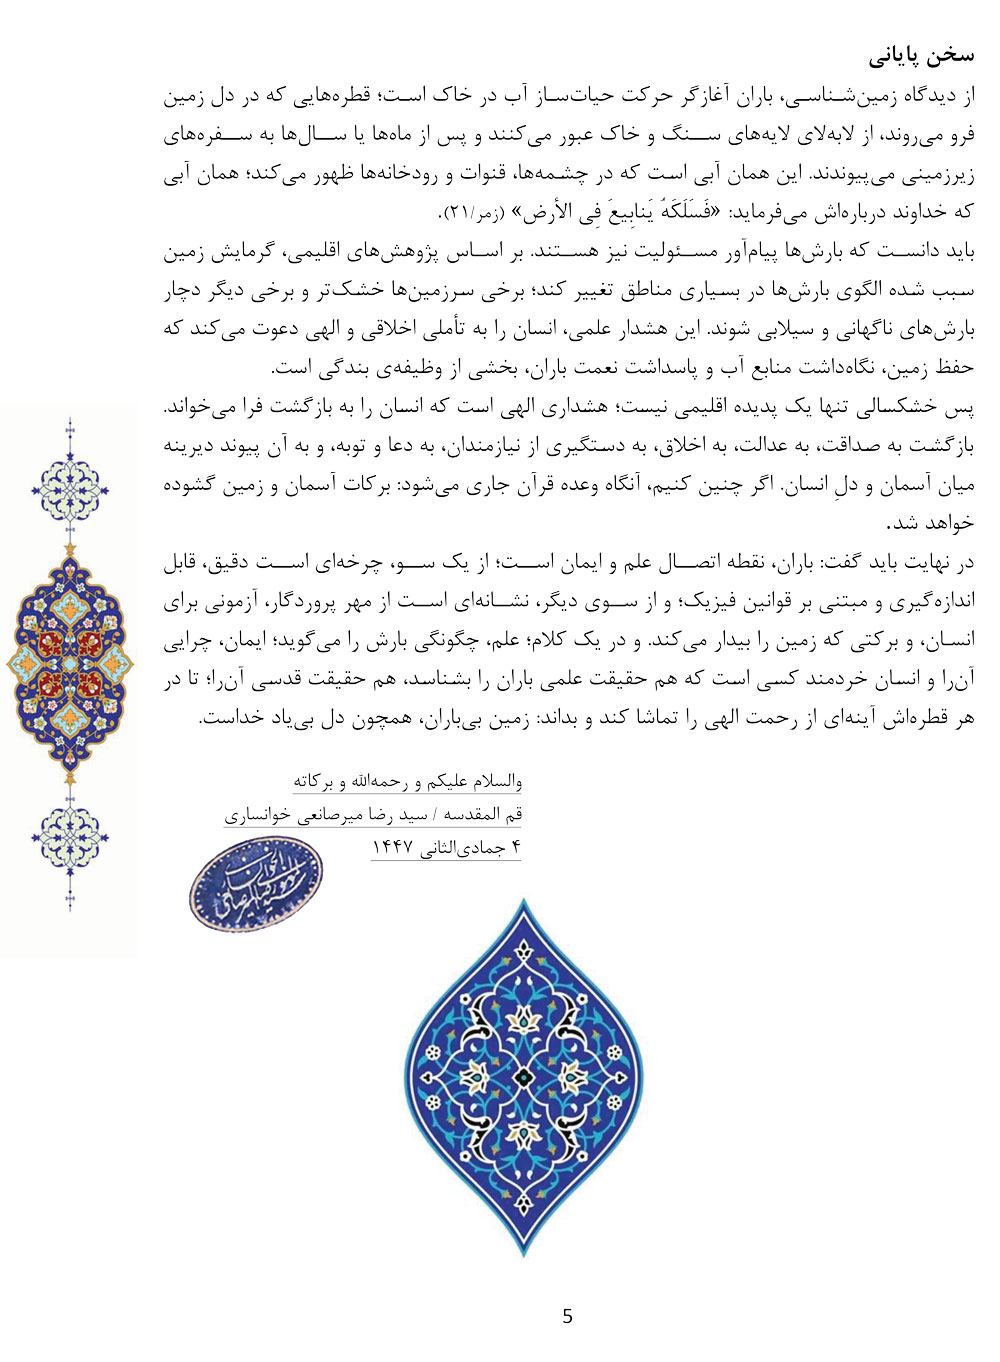 سخن پایانی
از دیدگاه زمین‌شناسی، باران آغازگر حرکت حیات‌ساز آب در خاک است؛ قطره‌هایی که در دل زمین
فرو می‌روند، از لابه‌لای لایه‌های سنگ و خاک عبور می‌کنند و پس از ماه‌ها یا سال‌ها به سفره‌های
زیرزمینی می‌پیوندند. این همان آبی است که در چشمه‌ها، قنوات و رودخانه‌ها ظهور می‌کند؛ همان آبی
که خداوند درباره‌اش می‌فرماید: «فَسَلَکَهُ یَنابِیعَ فِی الأرض» (زمر/۲۱).
باید دانست که بارش‌ها پیام‌آور مسئولیت نیز هستند. بر اساس پژوهش‌های اقلیمی، گرمایش زمین
سبب شده الگوی بارش‌ها در بسیاری مناطق تغییر کند؛ برخی سرزمین‌ها خشک‌تر و برخی دیگر دچار
بارش‌های ناگهانی و سیلابی شوند. این هشدار علمی، انسان را به تأملی اخلاقی و الهی دعوت می‌کند که
حفظ زمین، نگاه‌داشت منابع آب و پاسداشت نعمت باران، بخشی از وظیفه‌ی بندگی است.
پس خشکسالی تنها یک پدیده اقلیمی نیست؛ هشداری الهی است که انسان را به بازگشت فرا می‌خواند.
بازگشت به صداقت، به عدالت، به اخلاق، به دستگیری از نیازمندان، به دعا و توبه، و به آن پیوند دیرینه
میان آسمان و دلِ انسان. اگر چنین کنیم، آنگاه وعده قرآن جاری می‌شود: برکات آسمان و زمین گشوده
خواهد شد.
در نهایت باید گفت: باران، نقطه اتصال علم و ایمان است؛ از یک سو، چرخه‌ای است دقیق، قابل
اندازه‌گیری و مبتنی بر قوانین فیزیک؛ و از سوی دیگر، نشانه‌ای است از مهر پروردگار، آزمونی برای
انسان، و برکتی که زمین را بیدار می‌کند. و در یک کلام؛ علم، چگونگی بارش را می‌گوید؛ ایمان، چرایی
آن‌را و انسان خردمند کسی است که هم حقیقت علمی باران را بشناسد، هم حقیقت قدسی آن‌را؛ تا در
هر قطره‌اش آینه‌ای از رحمت الهی را تماشا کند و بداند: زمین بی‌باران، همچون دل بی‌یاد خداست.
والسلام علیکم و رحمه‌الله و برکاته
قم المقدسه / سید رضا میرصانعی خوانساری
۴ جمادی‌الثانی ۱۴۴۷
5